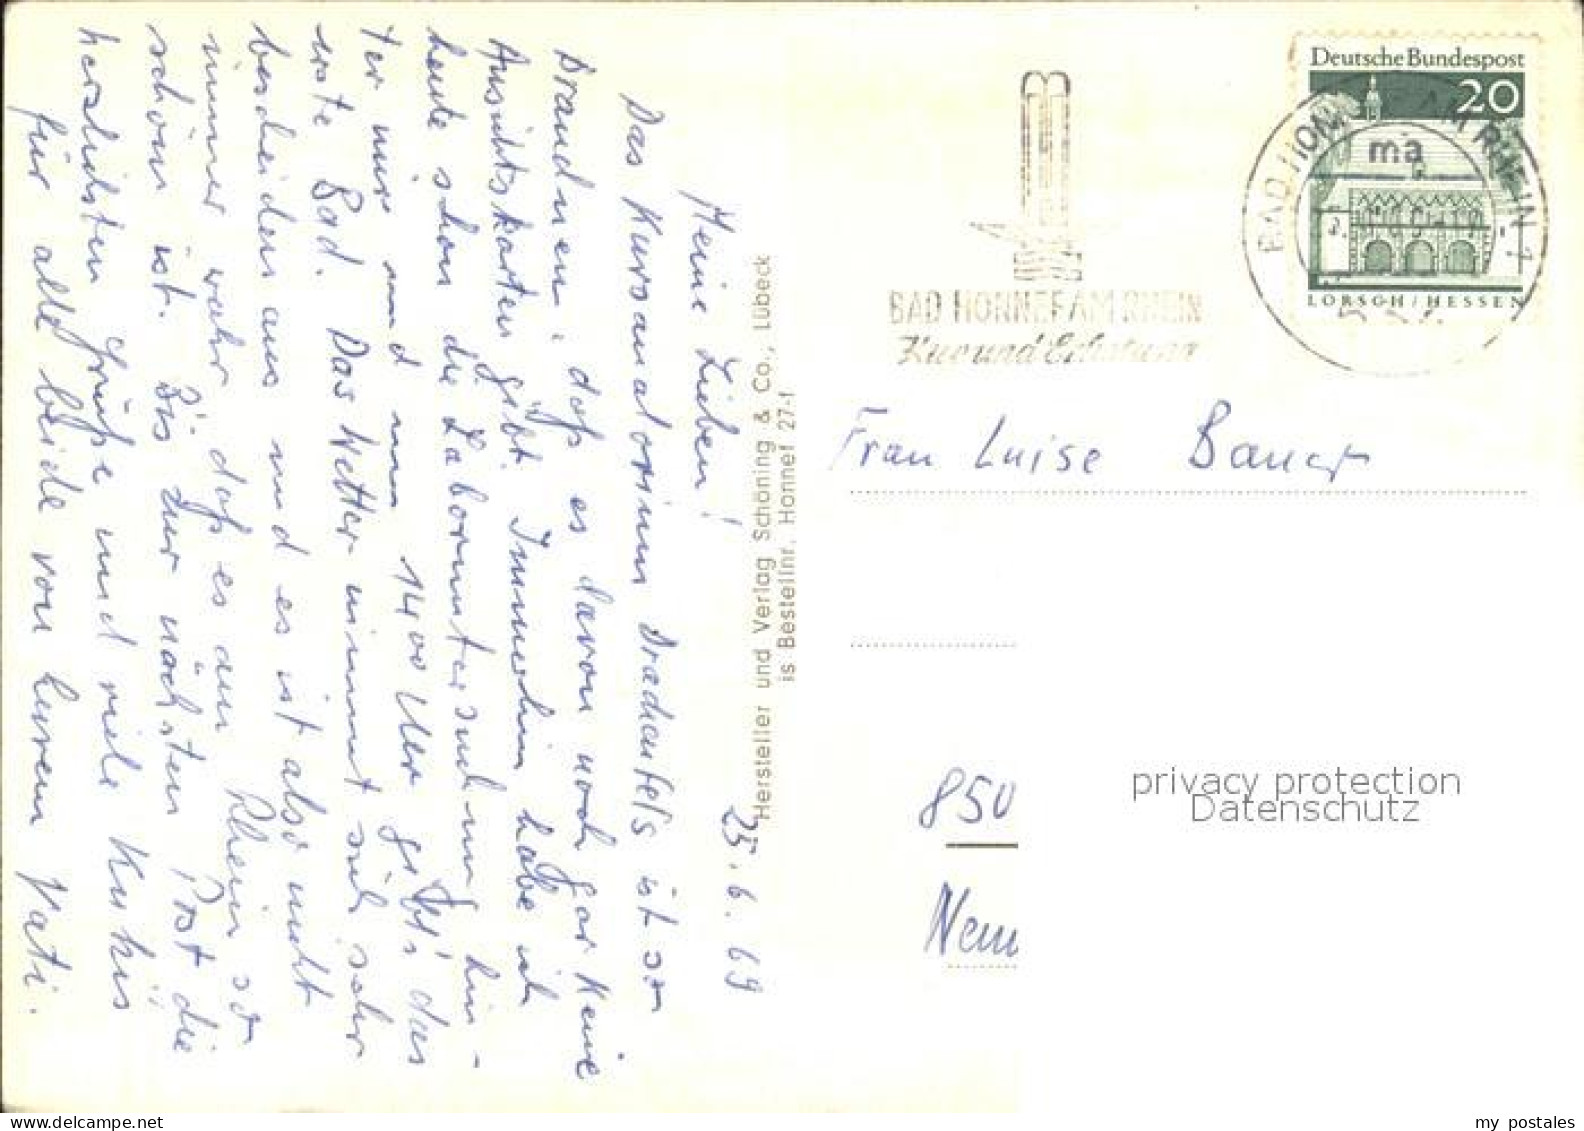 25.6.69
Meine Lieben!
Das Kursanatorium Drachenfels ist so
Draudnen, daß es davon noch gar keine
Ansichtskarten gibt. Immerhin habe ich
heute schon die Laboruntersuchung hin-
ter mir und um 1400 Uhr gibt's das
erste Bad. Das Wetter nimmt sich sehr
bescheiden aus und es ist also nicht
immer wahr, daß es am Rhein so
schön ist. Bis zur nächsten Post die
herzlichsten Grüße und viele Küßis
für alle beide von Eurem Vati.
Hersteller und Verlag Schöning & Co., Lübeck
is Bestellnr. Honnef 27-f
BAD HONNEF AM RHEIN
Kur und Erholung
Deutsche Bundespost
20
LORSCH/HESSEN
BAD HONN AM RHEIN 1
ma
Frau Luise
850
privacy protection
Datenschutz
my postales